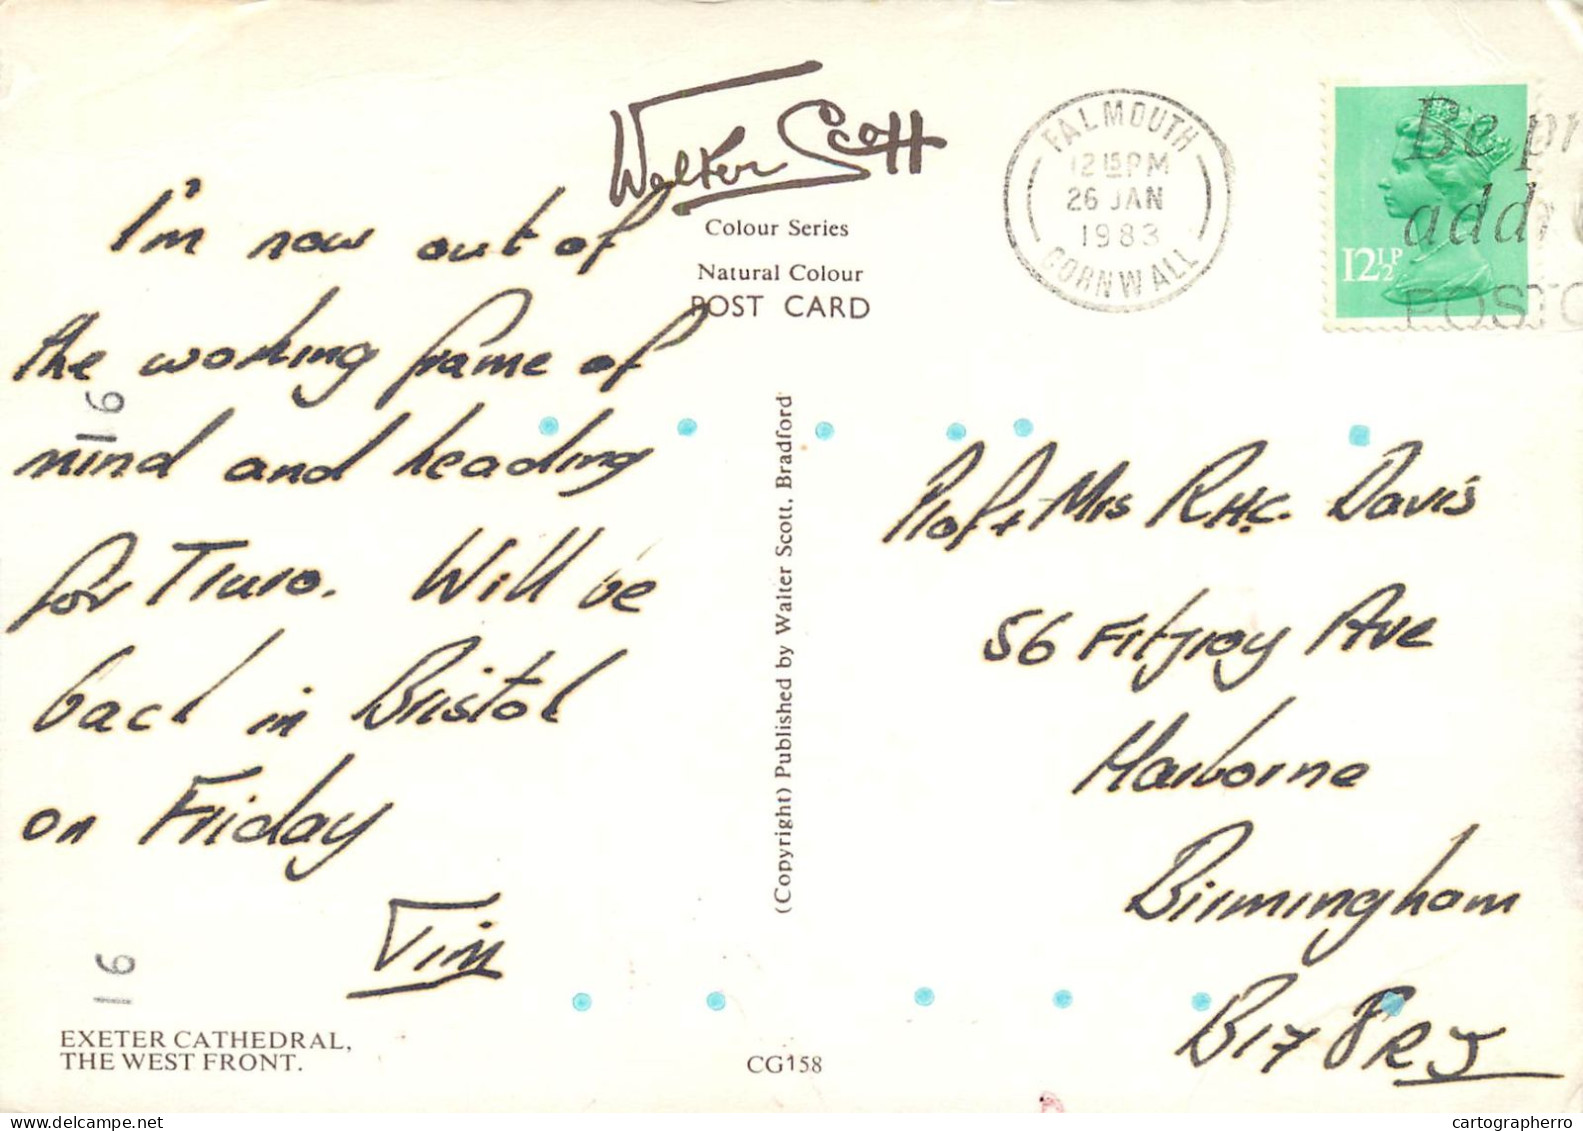 Walter Scott
Colour Series
Natural Colour
POST CARD
FALMOUTH
12 15 PM
26 JAN
1983
CORNWALL
Be pr
addr
POSTC
12½P
I'm now out of
the working frame of
mind and heading
for Truro. Will be
back in Bristol
on Friday
Tim
16
16
(Copyright) Published by Walter Scott, Bradford
Prof + Mrs R.H.C. Davis
56 Fitzroy Ave
Harborne
Birmingham
B17 8RJ
EXETER CATHEDRAL,
THE WEST FRONT.
CG158
cartographerro